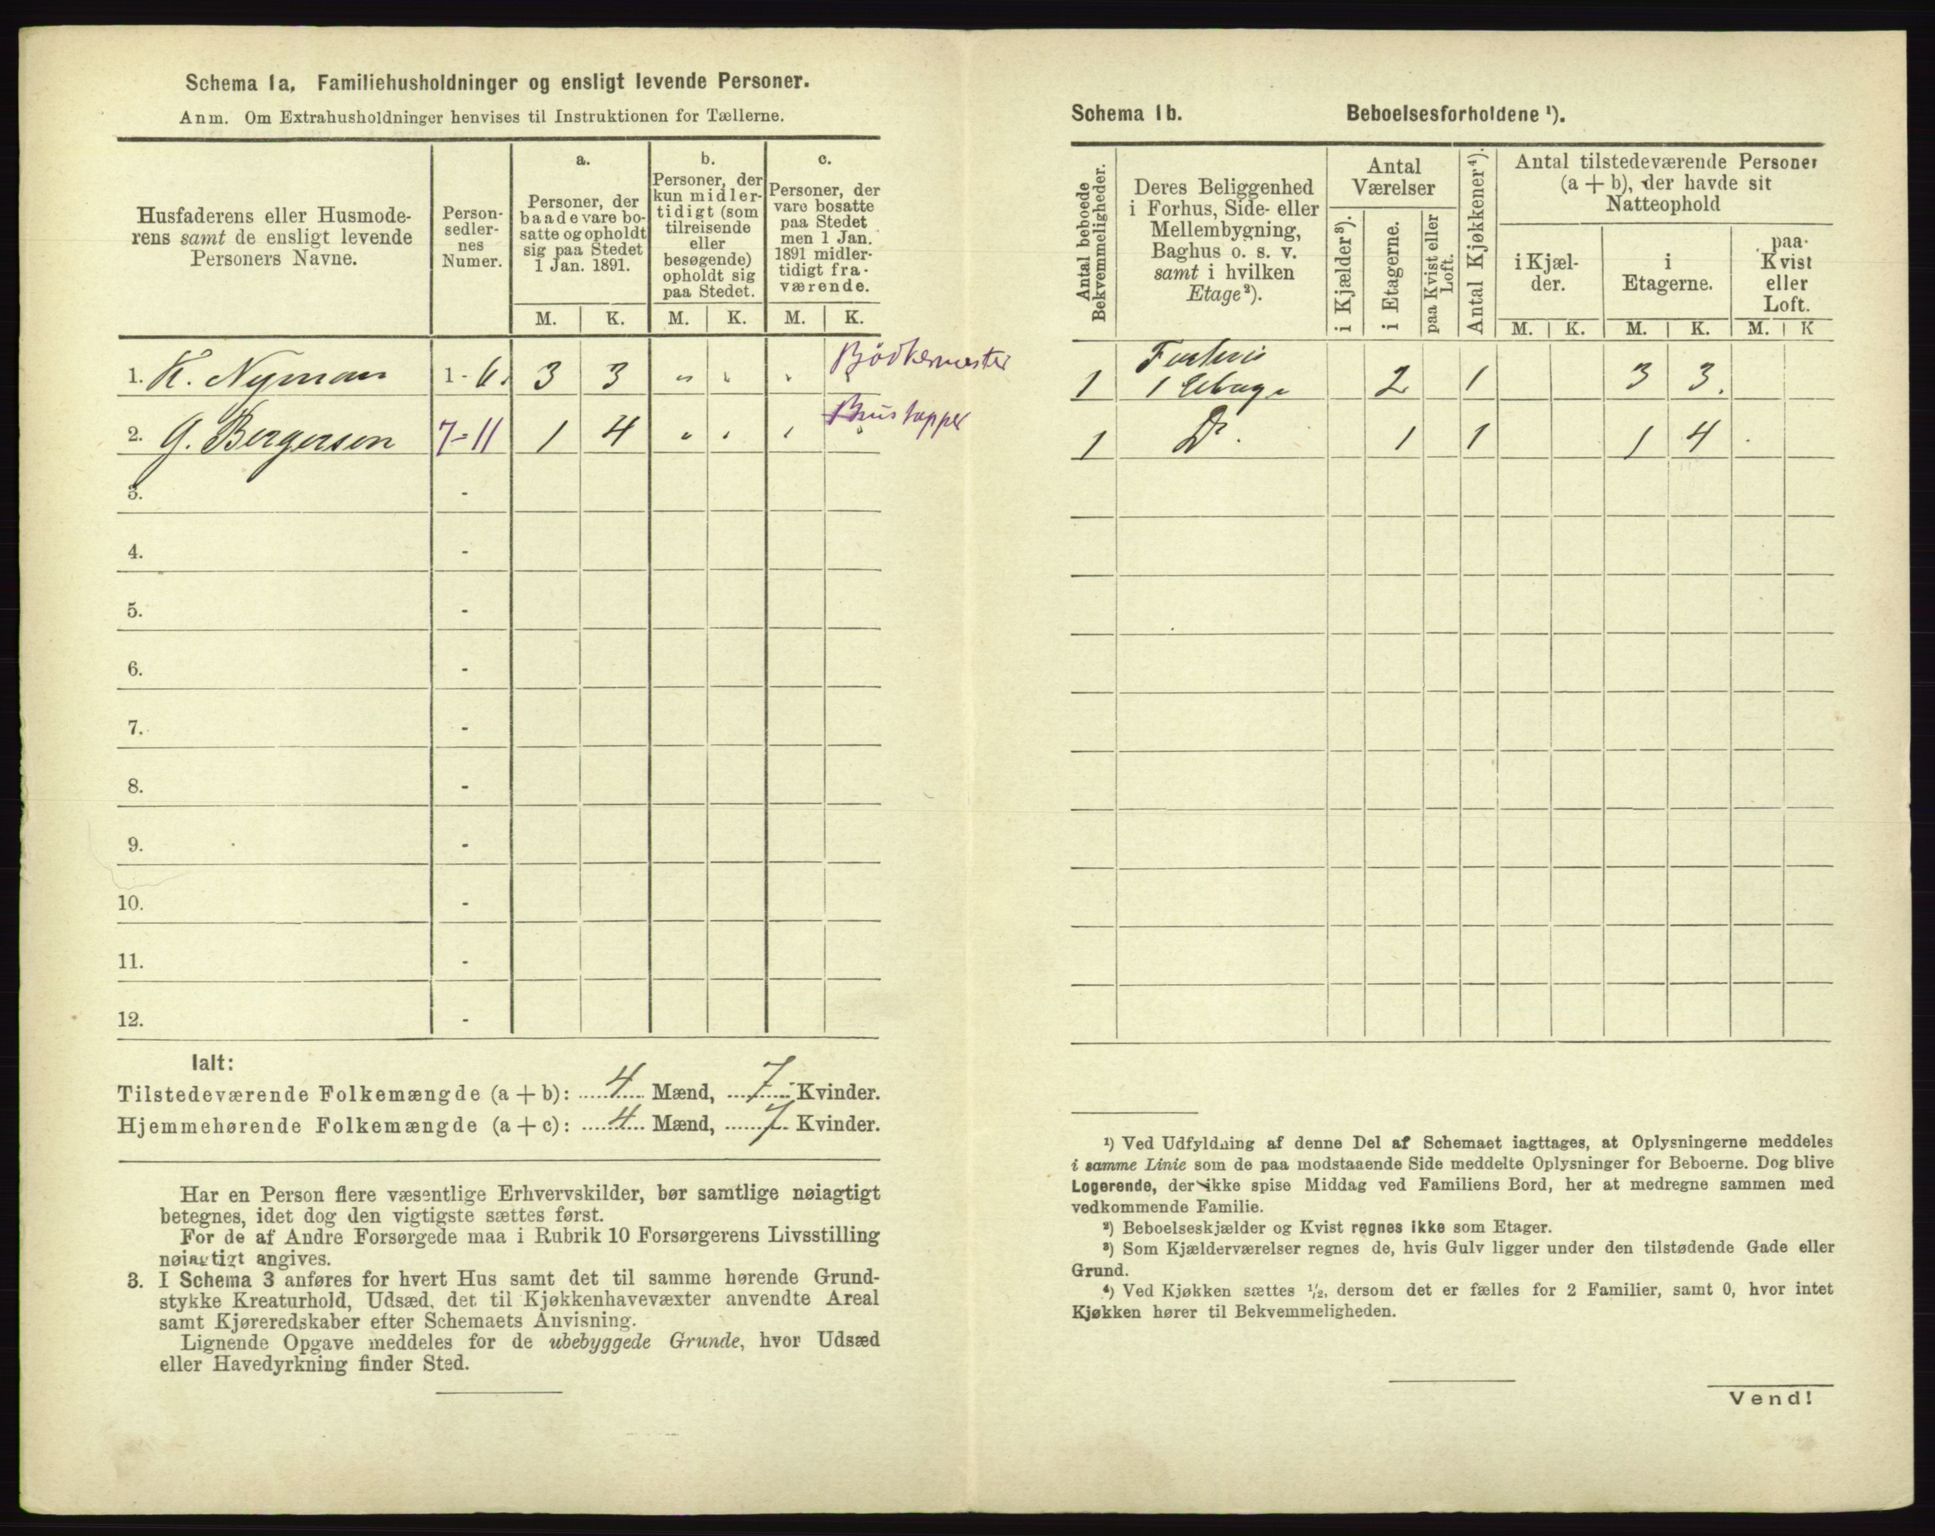 Schema 1a. Familiehusholdninger og ensligt levende Personer.
Anm. Om Extrahusholdninger henvises til Instruktionen for Tællerne.
Husfaderens eller Husmode-
rens samt de ensligt levende
Personers Navne.
Person-
sedler-
nes
Numer.
a.
Personer, der
baade vare bo-
satte og opholdt
sig paa Stedet
1 Jan. 1891.
b.
Personer, der
kun midler-
tidigt (som
tilreisende
eller
besøgende)
opholdt sig
paa Stedet.
c.
Personer, der
vare bosatte
paa Stedet
men 1 Jan.
1891 midler-
tidigt fra-
værende.
M. K. M. K. M. K.
1. K. Nyman 1 - 6. 3 3 " " " Bødkermester
2. G. Bergersen 7-11 1 4 " " "
3. -
4. -
5. -
6. -
7. -
8. -
9. -
10. -
11. -
12. -
Ialt:
Tilstedeværende Folkemængde (a + b): 4 Mænd, 7 Kvinder.
Hjemmehørende Folkemængde (a + c): 4 Mænd, 7 Kvinder.
Har en Person flere væsentlige Erhvervskilder, bør samtlige nøiagtigt
betegnes, idet dog den vigtigste sættes først.
For de af Andre Forsørgede maa i Rubrik 10 Forsørgerens Livsstilling
nøiagtigt angives.
3. I Schema 3 anføres for hvert Hus samt det til samme hørende Grund-
stykke Kreaturhold, Udsæd, det til Kjøkkenhavevæxter anvendte Areal
samt Kjøreredskaber efter Schemaets Anvisning.
Lignende Opgave meddeles for de ubebyggede Grunde, hvor Udsæd
eller Havedyrkning finder Sted.
Schema 1b. Beboelsesforholdene ¹).
Antal beboede
Bekvemmeligheder.
Deres Beliggenhed
i Forhus, Side- eller
Mellembygning,
Baghus o. s. v.
samt i hvilken
Etage²).
Antal
Værelser
i Kjælder³).
i Etagerne.
paa Kvist eller
Loft.
Antal Kjøkkener⁴).
Antal tilstedeværende Personer
(a + b), der havde sit
Natteophold
i Kjæl-
der.
i
Etagerne.
paa
Kvist
eller
Loft.
M. K. M. K. M. K
1 1 Etage 2 1 3 3.
1 Do. 1 1 1 4
¹) Ved Udfyldning af denne Del af Schemaet iagttages, at Oplysningerne meddeles
i samme Linie som de paa modstaaende Side meddelte Oplysninger for Beboerne. Dog blive
Logerende, der ikke spise Middag ved Familiens Bord, her at medregne sammen med
vedkommende Familie.
²) Beboelseskjælder og Kvist regnes ikke som Etager.
³) Som Kjælderværelser regnes de, hvis Gulv ligger under den tilstødende Gade eller
Grund.
⁴) Ved Kjøkken sættes ½, dersom det er fælles for 2 Familier, samt 0, hvor intet
Kjøkken hører til Bekvemmeligheden.
Vend!